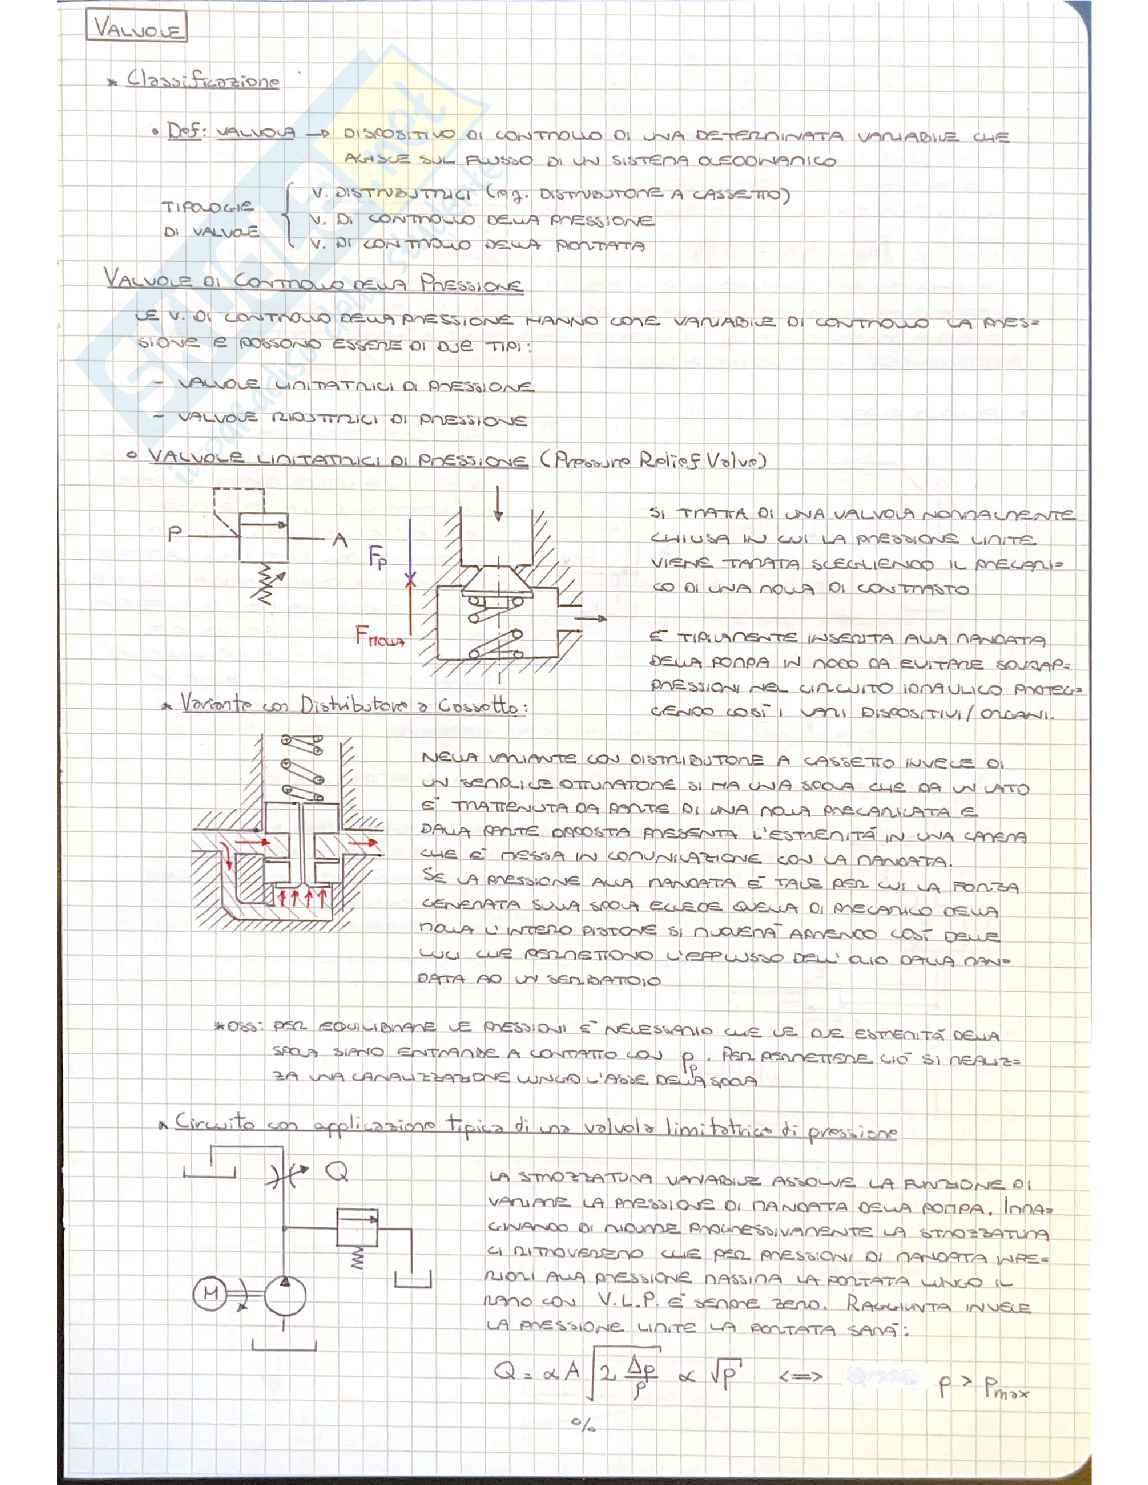 VALVOLE
* Classificazione
• Def: VALVOLA → DISPOSITIVO DI CONTROLLO DI UNA DETERMINATA VARIABILE CHE
AGISCE SUL FLUSSO DI UN SISTEMA OLEODINAMICO
TIPOLOGIE DI VALVOLE
V. DISTRIBUTRICI (eg. DISTRIBUTORE A CASSETTO)
V. DI CONTROLLO DELLA PRESSIONE
V. DI CONTROLLO DELLA PORTATA
VALVOLE DI CONTROLLO DELLA PRESSIONE
LE V. DI CONTROLLO DELLA PRESSIONE HANNO COME VARIABILE DI CONTROLLO LA PRES-
SIONE E POSSONO ESSERE DI DUE TIPI:
- VALVOLE LIMITATRICI DI PRESSIONE
- VALVOLE RIDUTTRICI DI PRESSIONE
• VALVOLE LIMITATRICI DI PRESSIONE (Pressure Relief Valve)
P
A
Fp
FMOLLA
SI TRATTA DI UNA VALVOLA NORMALMENTE
CHIUSA IN CUI LA PRESSIONE LIMITE
VIENE TARATA SCEGLIENDO IL PRECARI-
CO DI UNA MOLLA DI CONTRASTO
È TIPICAMENTE INSERITA ALLA MANDATA
DELLA POMPA IN MODO DA EVITARE SOVRAP-
PRESSIONI NEL CIRCUITO IDRAULICO PROTEG-
GENDO COSÌ I VARI DISPOSITIVI/ORGANI.
* Variante con Distributore a Cassetto:
NELLA VARIANTE CON DISTRIBUTORE A CASSETTO INVECE DI
UN SEMPLICE OTTURATORE SI HA UNA SPOLA CHE DA UN LATO
È TRATTENUTA DA PARTE DI UNA MOLLA PRECARICATA E
DALLA PARTE OPPOSTA PRESENTA L'ESTREMITÀ IN UNA CAMERA
CHE È MESSA IN COMUNICAZIONE CON LA MANDATA.
SE LA PRESSIONE ALLA MANDATA È TALE PER CUI LA FORZA
GENERATA SULLA SPOLA ECCEDE QUELLA DI PRECARICO DELLA
MOLLA L'INTERO PISTONE SI MUOVERÀ APRENDO COSÌ DELLE
LUCI CHE PERMETTONO L'EFFLUSSO DELL'OLIO DALLA MAN-
DATA AD UN SERBATOIO
* OSS: PER EQUILIBRARE LE PRESSIONI È NECESSARIO CHE LE DUE ESTREMITÀ DELLA
SPOLA SIANO ENTRAMBE A CONTATTO CON Pp. PER PERMETTERE CIÒ SI REALIZ-
ZA UNA CANALIZZAZIONE LUNGO L'ASSE DELLA SPOLA
* Circuito con applicazione tipica di una valvola limitatrice di pressione
Q
M
LA STROZZATURA VARIABILE ASSOLVE LA FUNZIONE DI
VARIARE LA PRESSIONE DI MANDATA DELLA POMPA. IMMA-
GINANDO DI RIDURRE PROGRESSIVAMENTE LA STROZZATURA
CI RITROVEREMO CHE PER PRESSIONI DI MANDATA INFE-
RIORI ALLA PRESSIONE MASSIMA LA PORTATA LUNGO IL
RAMO CON V.L.P. È SEMPRE ZERO. RAGGIUNTA INVECE
LA PRESSIONE LIMITE LA PORTATA SARÀ:
Q = αA √(2 Δp/ρ) ∝ √p <=> p > pmax
%